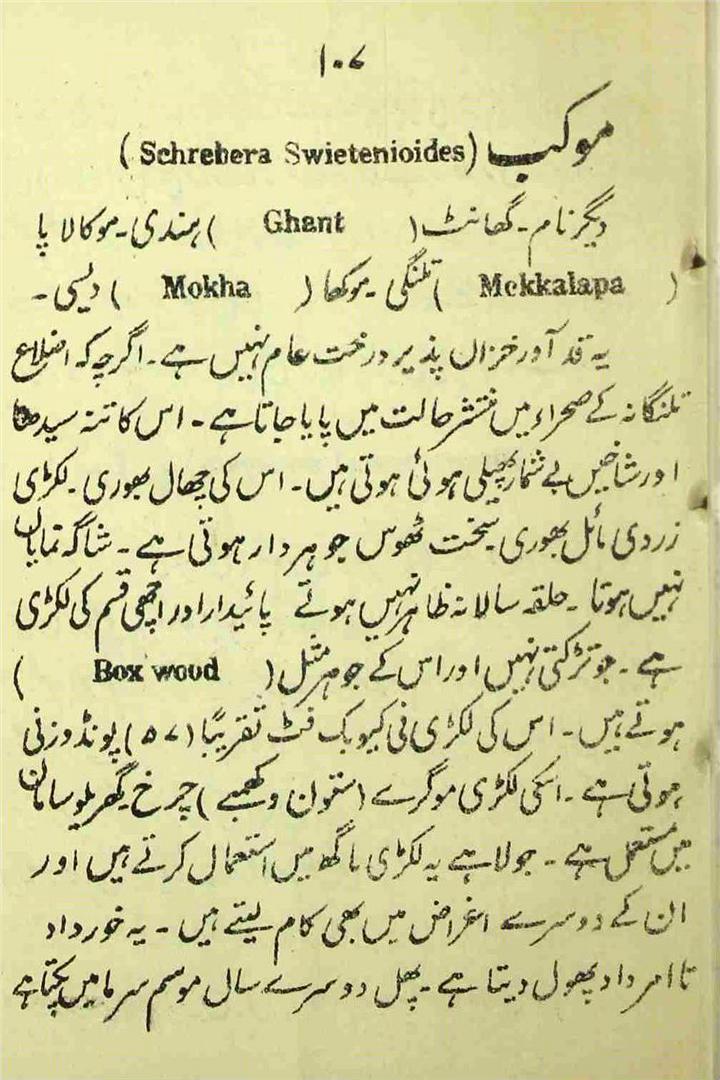 ۱۰۷
موکب (Schrebera Swietenioides)
دیگر نام۔ گھانٹ ( Ghant ) ہندی۔ موکالا پا
( Mekkalapa ) تلنگی۔ موکھا ( Mokha ) دیسی۔
یہ قد آور خزاں پذیر درخت عام نہیں ہے۔ اگرچہ کہ اضلاع
تلنگانہ کے صحراء میں منتشر حالت میں پایا جاتا ہے۔ اس کا تنہ سیدھا
اور شاخیں بے شمار پھیلی ہوئی ہوتی ہیں۔ اس کی چھال بھوری۔ لکڑی
زردی مائل بھوری سخت ٹھوس جوہر دار ہوتی ہے۔ شاگہ نمایاں
نہیں ہوتا۔ حلقہ سالانہ ظاہر نہیں ہوتے پائیدار اور اچھی قسم کی لکڑی
ہے۔ جو تڑکتی نہیں اور اس کے جوہر مثل ( Box wood )
ہوتے ہیں۔ اس کی لکڑی فی کیوبک فٹ تقریبًا (۵۷) پونڈ وزنی
ہوتی ہے۔ اسکی لکڑی موگرے (ستون و کھمبے) چرخ۔ گھریلو سامان
میں مستعمل ہے۔ جولاہے یہ لکڑی ماگھ میں استعمال کرتے ہیں اور
ان کے دوسرے اغراض میں بھی کام لیتے ہیں۔ یہ خورداد
تا امرداد پھول دیتا ہے۔ پھل دوسرے سال موسم سرما میں پکتا ہے